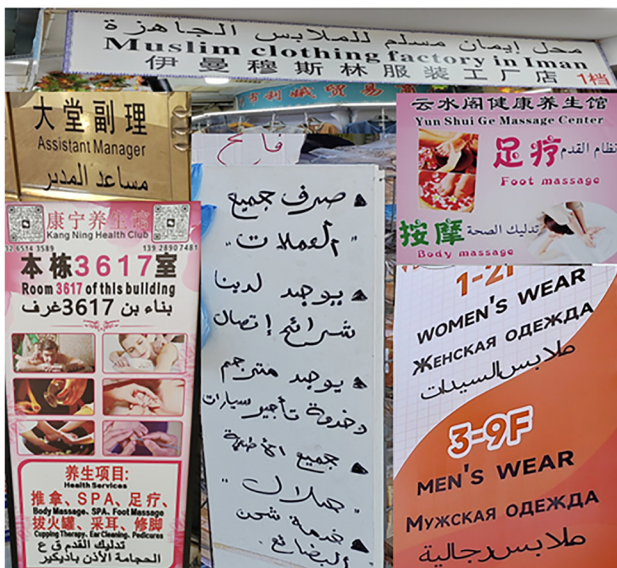 محل إيمان مسلم للملابس الجاهزة
Muslim clothing factory in Iman
伊曼穆斯林服装工厂店 1档
大堂副理
Assistant Manager
مساعد المدير
康宁养生馆
Kang Ning Health Club
139 2890 7481
本栋3617室
Room 3617 of this building
بناء بن 3617غرف
养生项目:
Health Services
推拿、SPA、足疗、
Body Massage、SPA、Foot Massage
拔火罐、采耳、修脚
Cupping Therapy、Ear Cleaning、Pedicures
تدليك القدم ق ع
الحجامة الأذن باديكير
صرف جميع
"العملات"
يوجد لدينا
شرائح إتصال
يوجد مترجم
وخدمة تأجير سيارات
جميع الأطعمة
"حلال"
خدمة شحن
البضائع
云水阁健康养生馆
Yun Shui Ge Massage Center
足疗 نظام القدم
Foot massage
按摩 تدليك الصحة
Body massage
WOMEN'S WEAR
ЖЕНСКАЯ ОДЕЖДА
ملابس السيدات
3-9F
MEN'S WEAR
МУЖСКАЯ ОДЕЖДА
ملابس رجالية